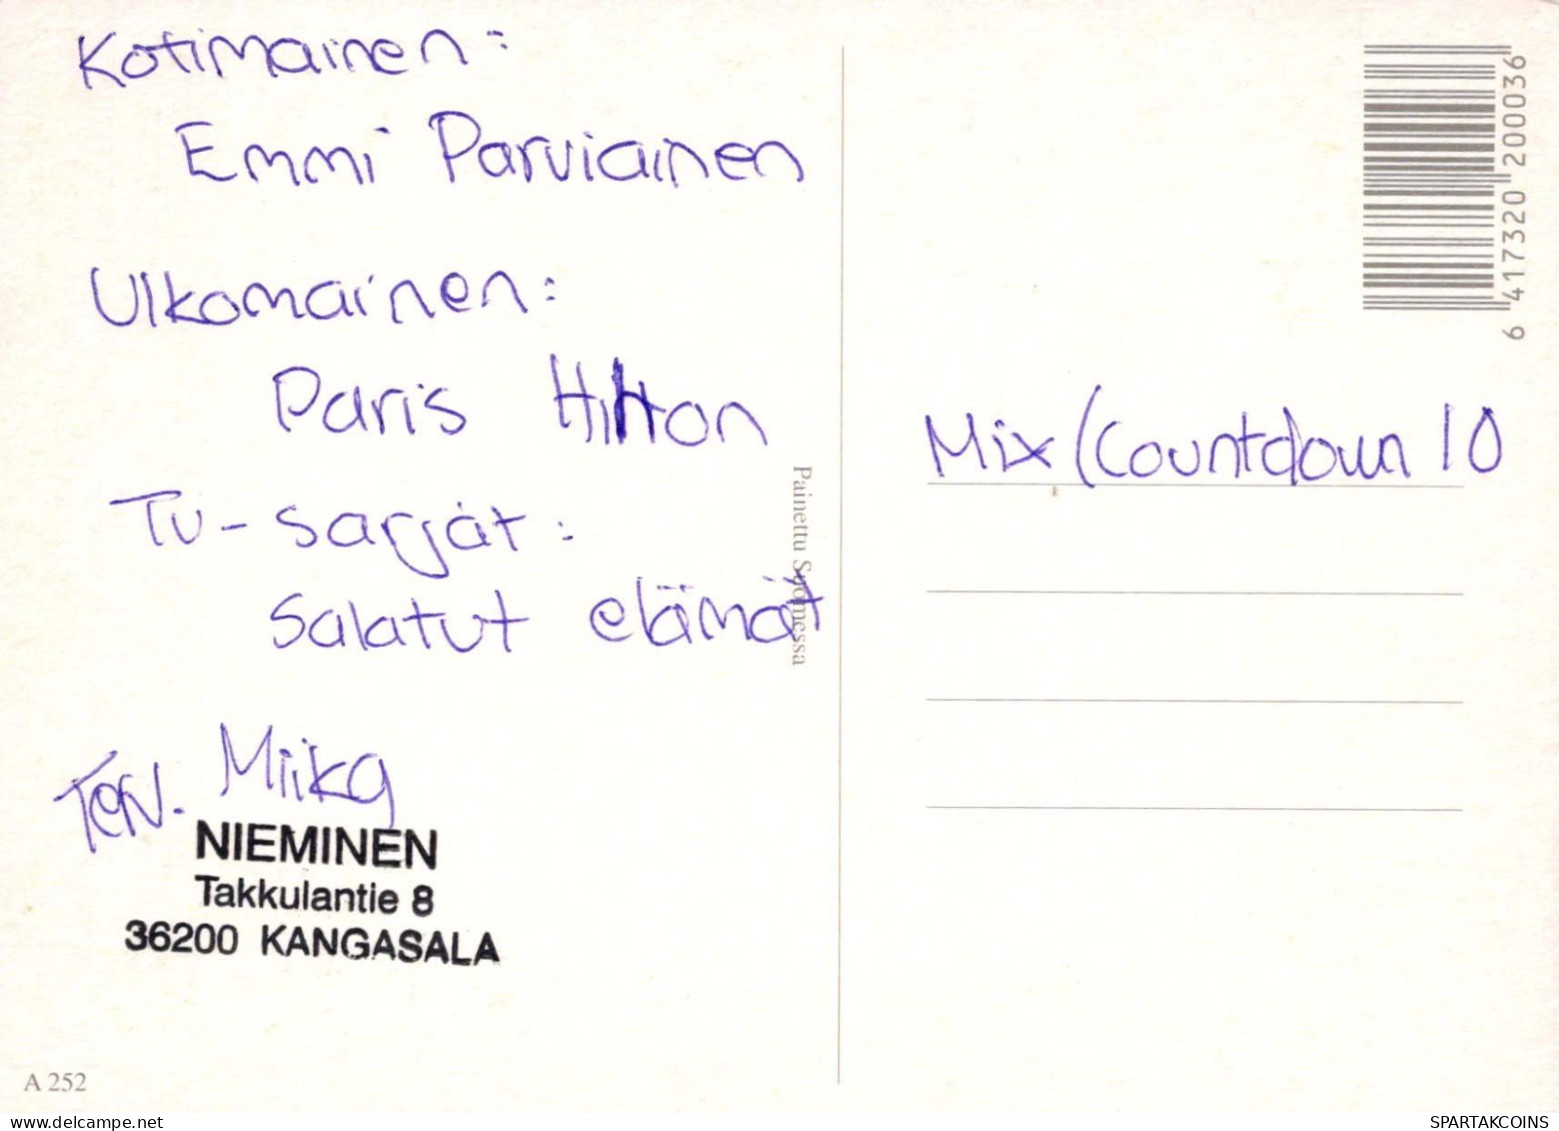 Kotimainen:
Emmi Parviainen
Ulkomainen:
Paris Hilton
Tv-sarjat:
Salatut elämät
Terv. Miika
NIEMINEN
Takkulantie 8
36200 KANGASALA
A 252
Painettu Suomessa
6 417320 200036
Mix (Countdown 10
SPARTAKCOINS